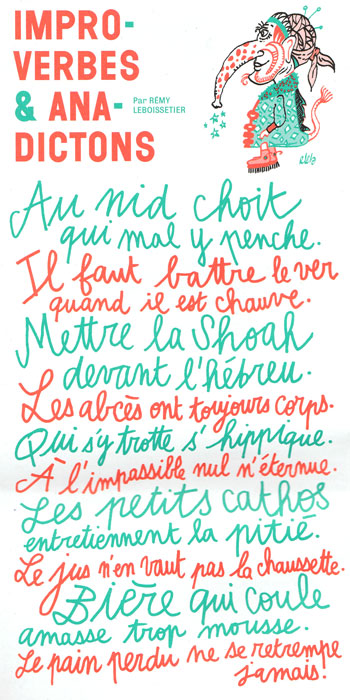 IMPRO-
VERBES
& ANA-
DICTONS
Par RÉMY
LEBOISSETIER
Au nid choit
qui mal y penche.
Il faut battre le ver
quand il est chauve.
Mettre la Shoah
devant l'hébreu.
Les abcès ont toujours corps.
Qui s'y trotte s'hippique.
À l'impassible nul n'éternue.
Les petits cathos
entretiennent la pitié.
Le jus n'en vaut pas la chaussette.
Bière qui coule
amasse trop mousse.
Le pain perdu ne se retrempe
jamais.